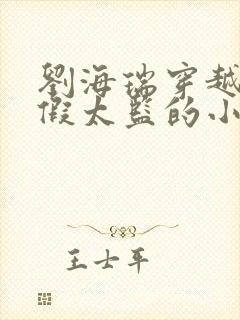 劉海瑞穿越
假太監的小
王士平